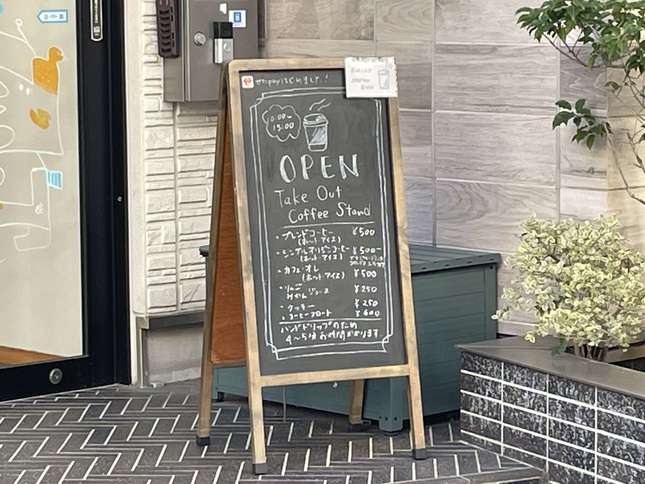 payはじめました!
10:00~
15:00
OPEN
Take Out
Coffee Stand
・ブレンドコーヒー ¥500
(ホット アイス)
・シングルオリジンコーヒー ¥500~
(ホット アイス)
・カフェ・オレ ¥500
(ホット アイス)
・りんご
みかん ジュース ¥250
・クッキー ¥250
・コーヒーフロート ¥600
ハンドドリップのため
4~5分お時間かかります